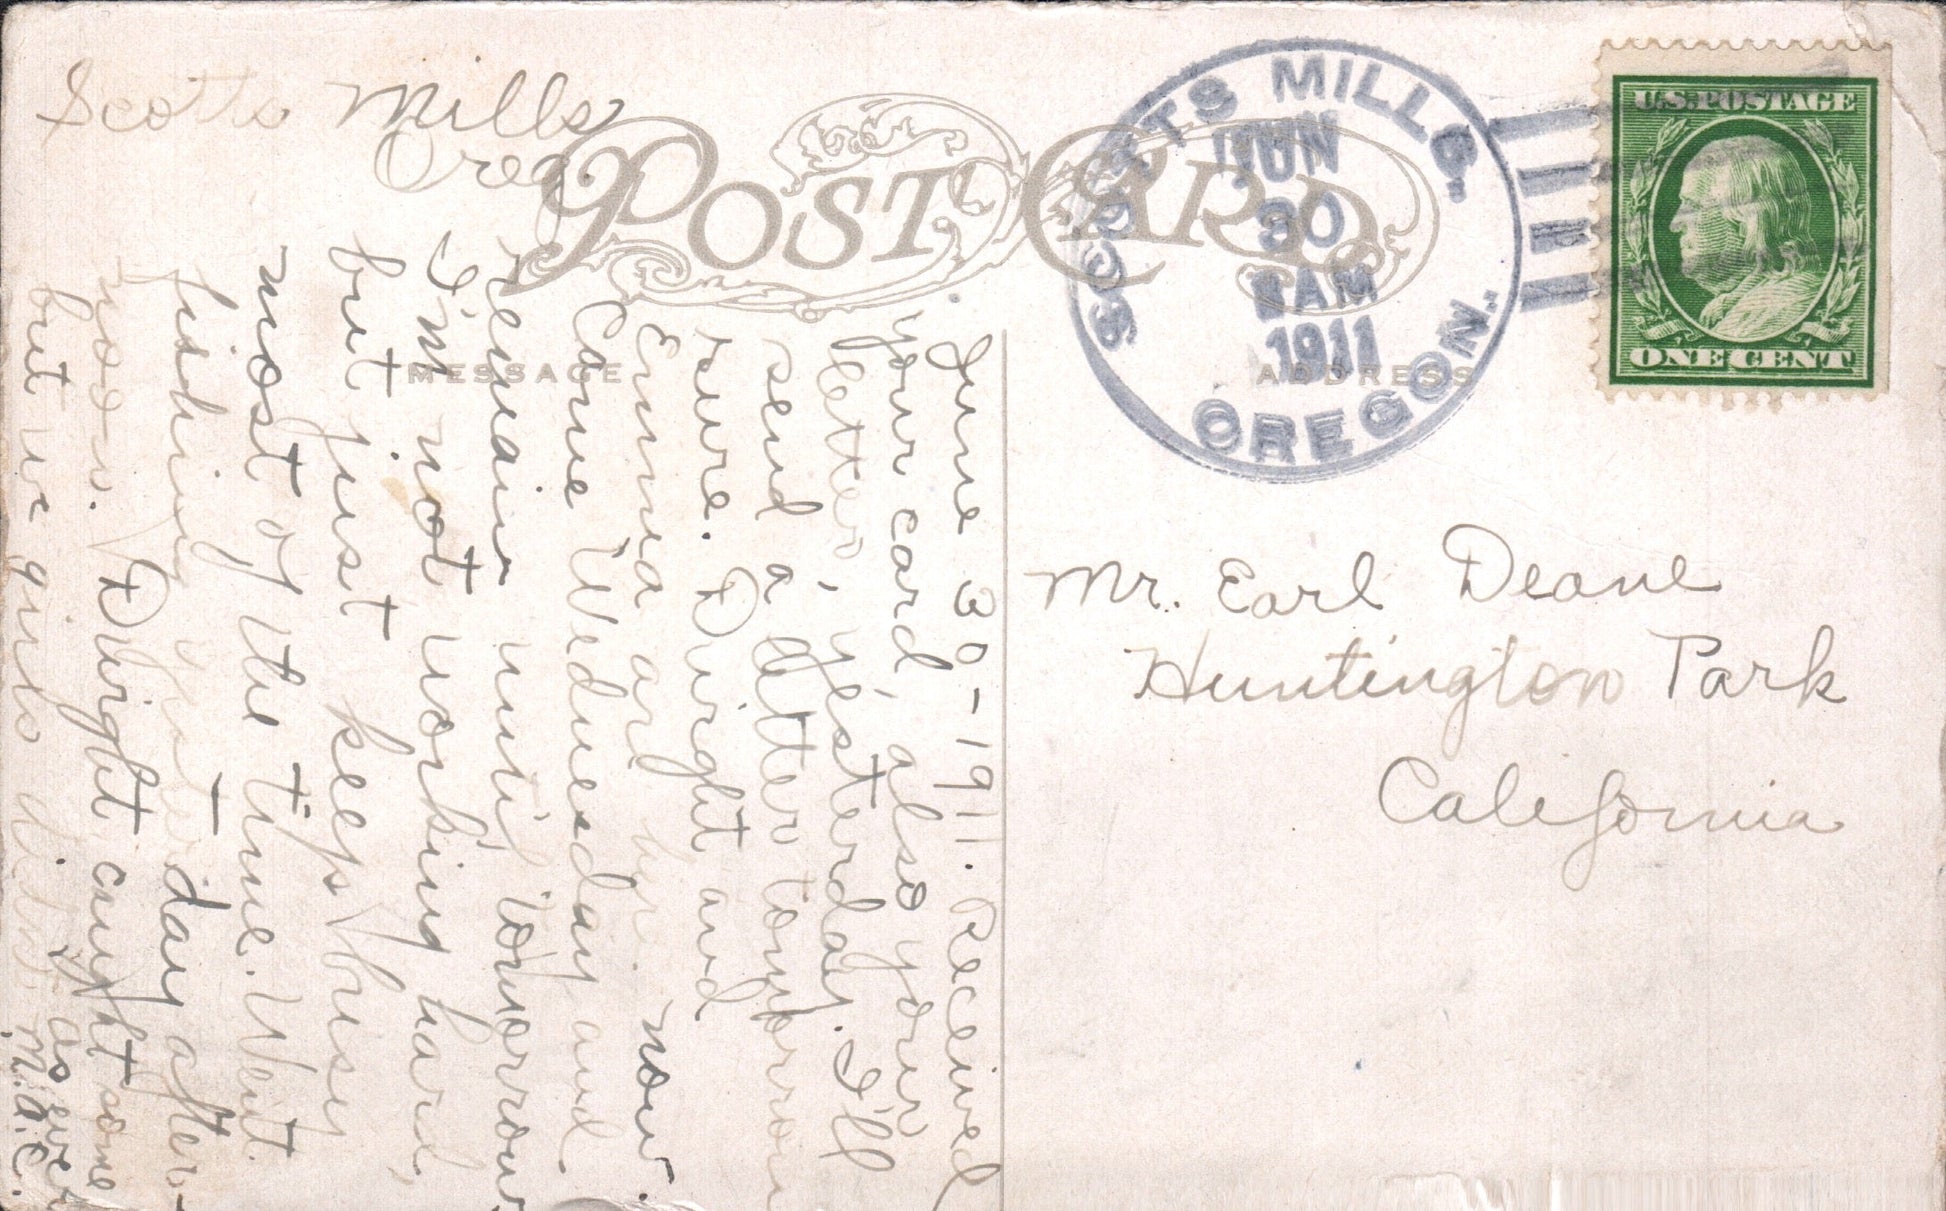 Scotts Mills
Oreg.
POST CARD
MESSAGE
ADDRESS
SCOTTS MILLS.
JUN
30
AM
1911
OREGON.
U.S. POSTAGE
ONE CENT
Mr. Earl Deane
Huntington Park
California
June 30-1911. Received
your card, also your
letter, yesterday. I'll
send a letter tomorrow
sure. Dwight and
Emma are here now.
Came Wednesday and
remain until tomorrow
I'm not working hard,
but just keeps busy
most of the time. Went
fishing yesterday after-
noon. Dwight caught some
but we girls didn't.
as ever
M.A.C.